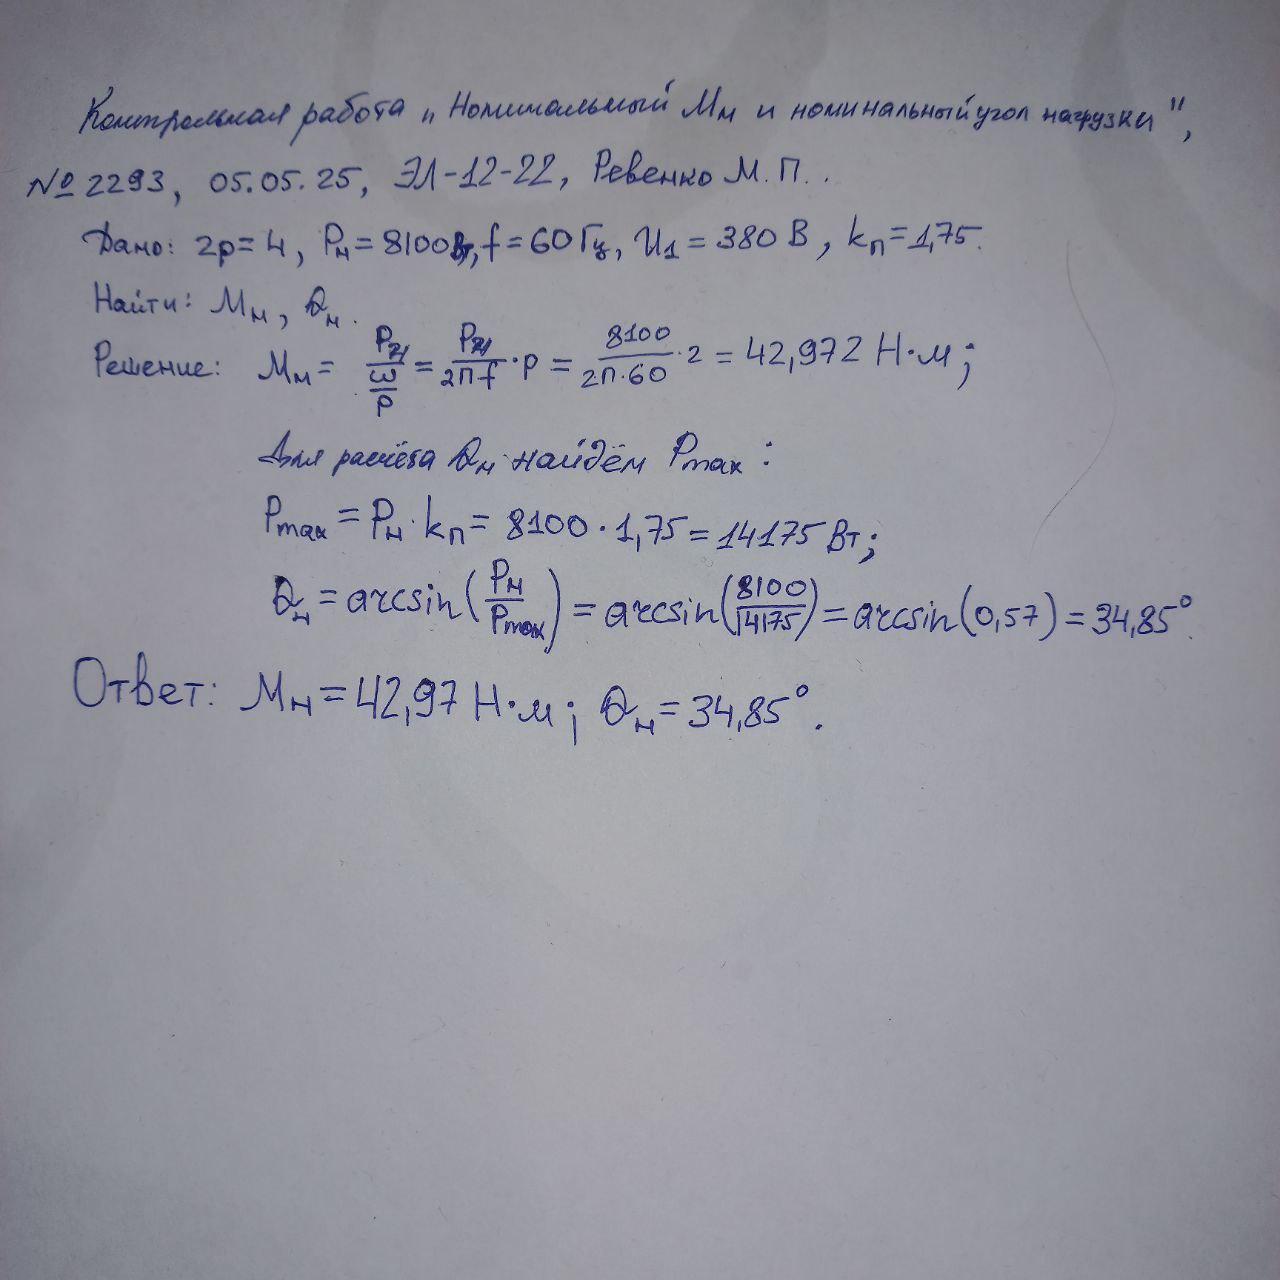 Контрольная работа "Номинальный Мн и номинальный угол нагрузки",
№ 2293, 05.05.25, ЭЛ-12-22, Ревенко М.П..
Дано: 2p=4, Pн=8100Вт, f=60Гц, U1=380 В, kп=1,75.
Найти: Мн, θн.
Решение: Мн = Pн/(ω/p) = Pн/(2πf)·p = 8100/(2π·60)·2 = 42,972 Н·м;
Для расчёта θн найдём Pmax:
Pmax = Pн·kп = 8100·1,75 = 14175 Вт;
θн = arcsin(Pн/Pmax) = arcsin(8100/14175) = arcsin(0,57) = 34,85°.
Ответ: Мн = 42,97 Н·м; θн = 34,85°.